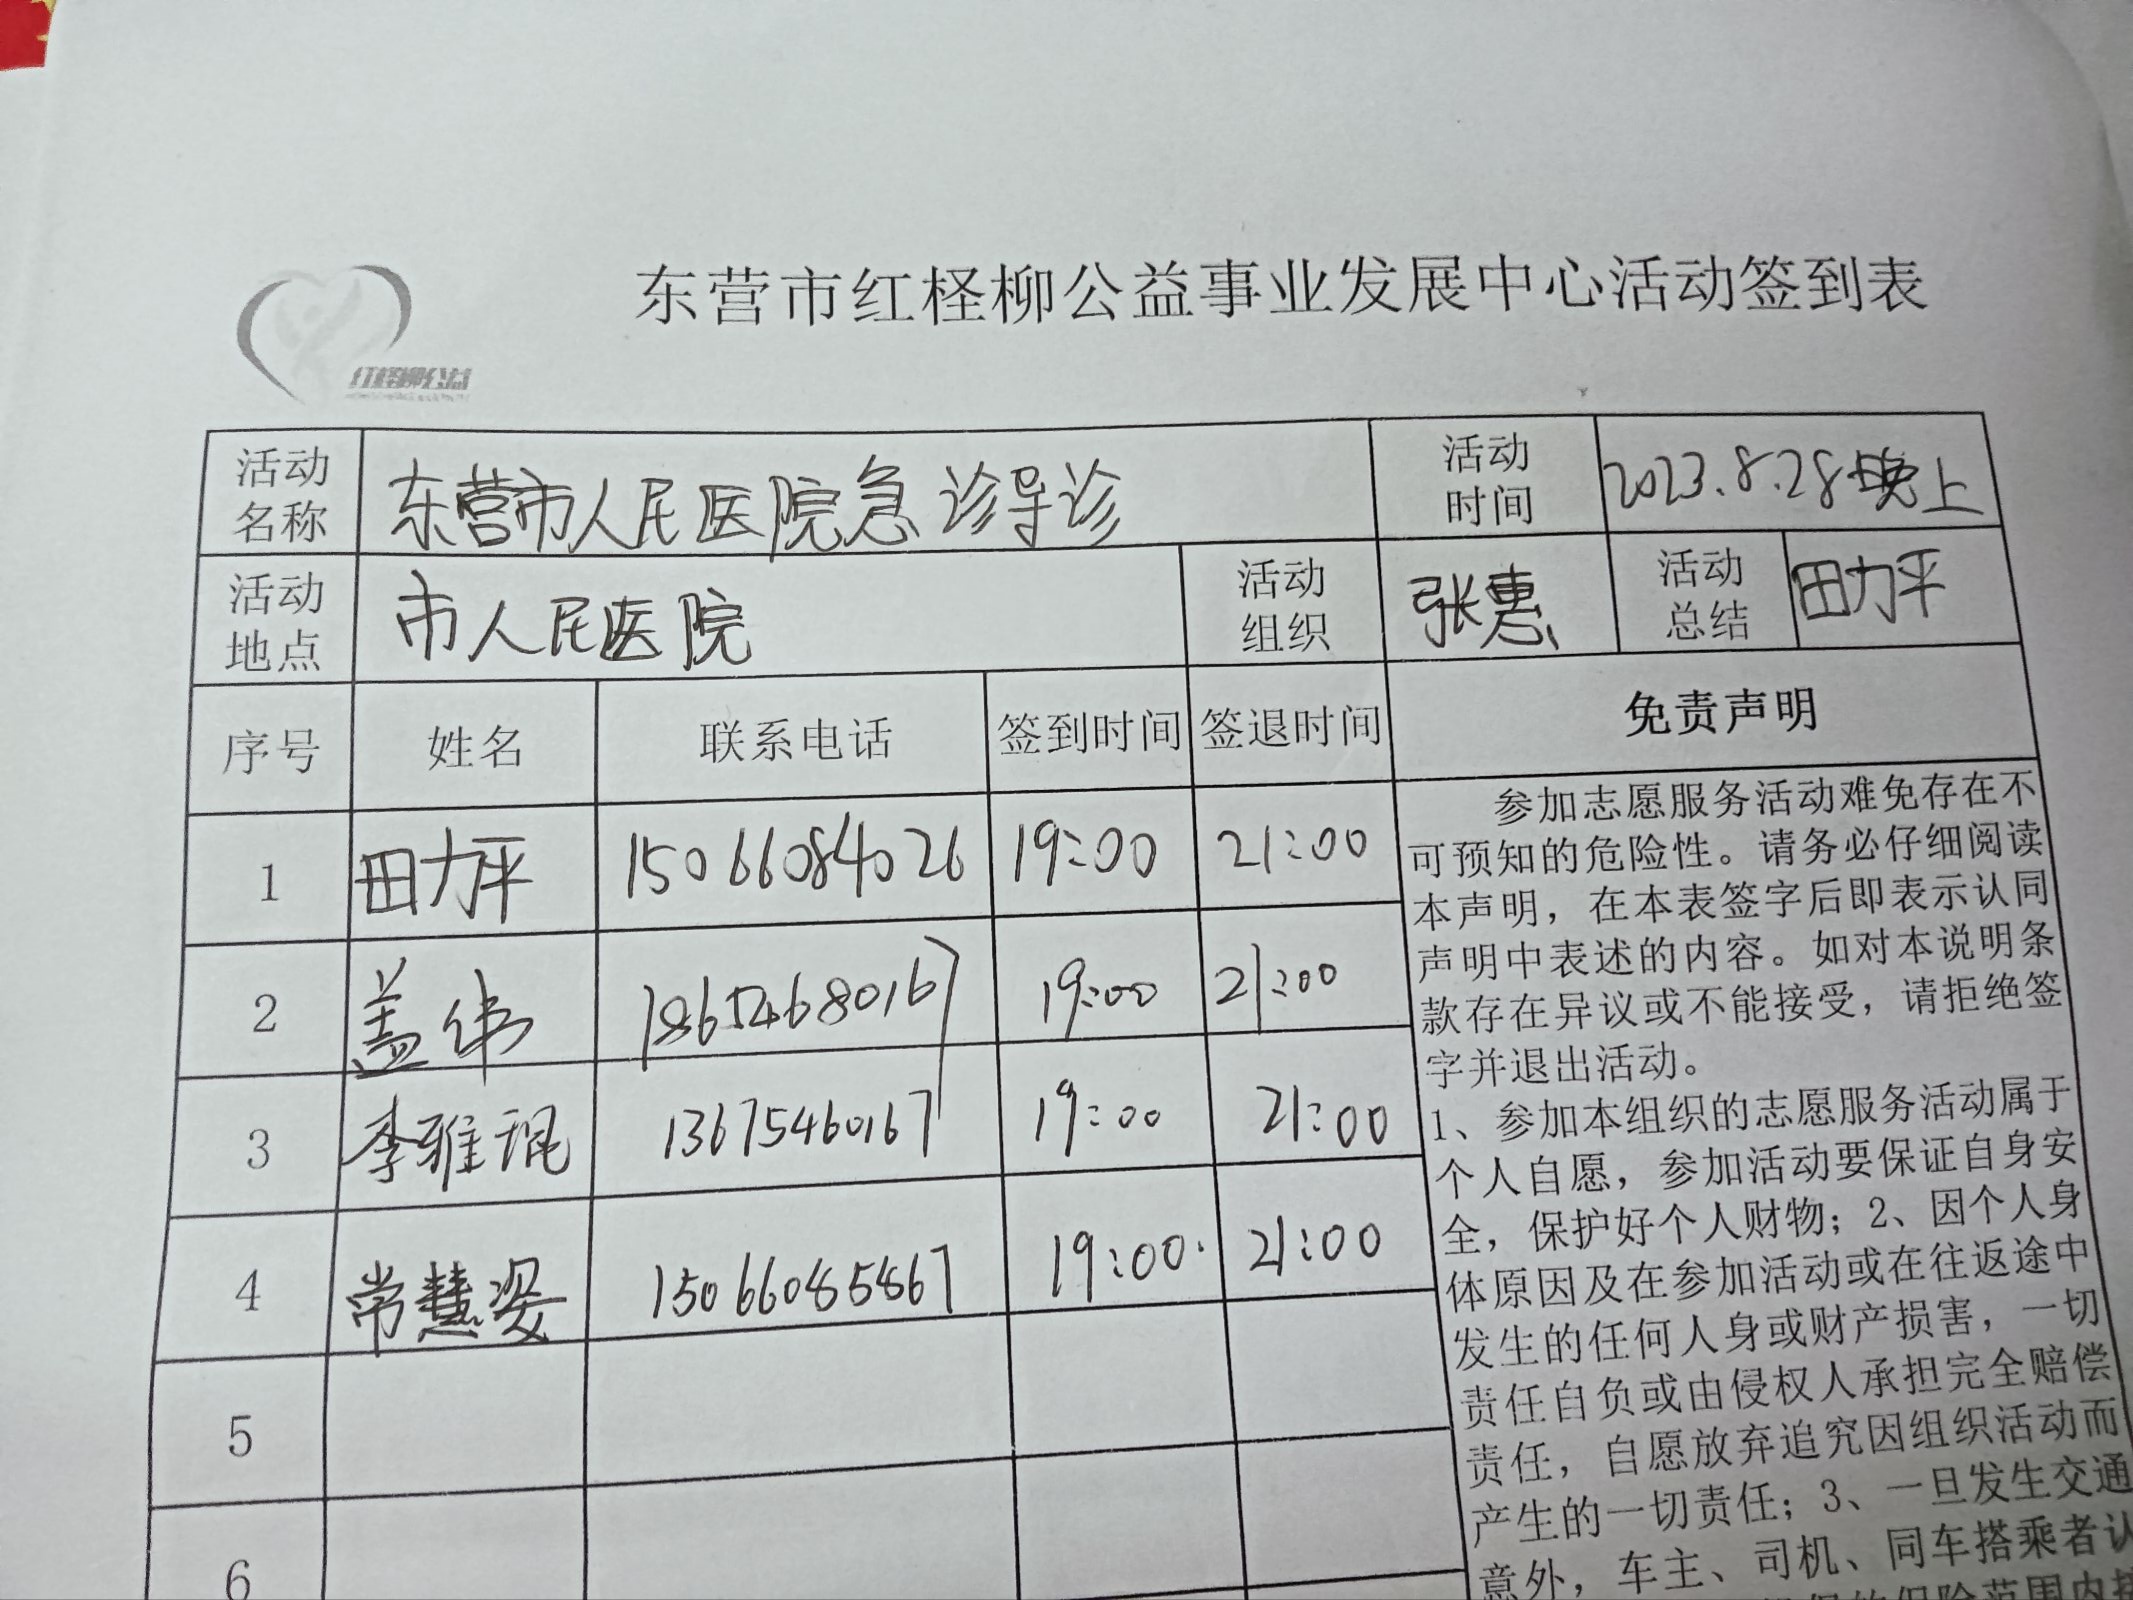 东营市红柽柳公益事业发展中心活动签到表
红柽柳公益
活动名称 东营市人民医院急诊导诊 活动时间 2023.8.28晚上
活动地点 市人民医院 活动组织 张惠 活动总结 田力平
序号 姓名 联系电话 签到时间 签退时间 免责声明
1 田力平 15066084026 19:00 21:00
2 盖伟 18654680167 19:00 21:00
3 李雅琨 13675460167 19:00 21:00
4 常慧姿 15066085867 19:00 21:00
5
6
参加志愿服务活动难免存在不
可预知的危险性。请务必仔细阅读
本声明，在本表签字后即表示认同
声明中表述的内容。如对本说明条
款存在异议或不能接受，请拒绝签
字并退出活动。
1、参加本组织的志愿服务活动属于
个人自愿，参加活动要保证自身安
全，保护好个人财物；2、因个人身
体原因及在参加活动或在往返途中
发生的任何人身或财产损害，一切
责任自负或由侵权人承担完全赔偿
责任，自愿放弃追究因组织活动而
产生的一切责任；3、一旦发生交通
意外，车主、司机、同车搭乘者认
的保险范围内